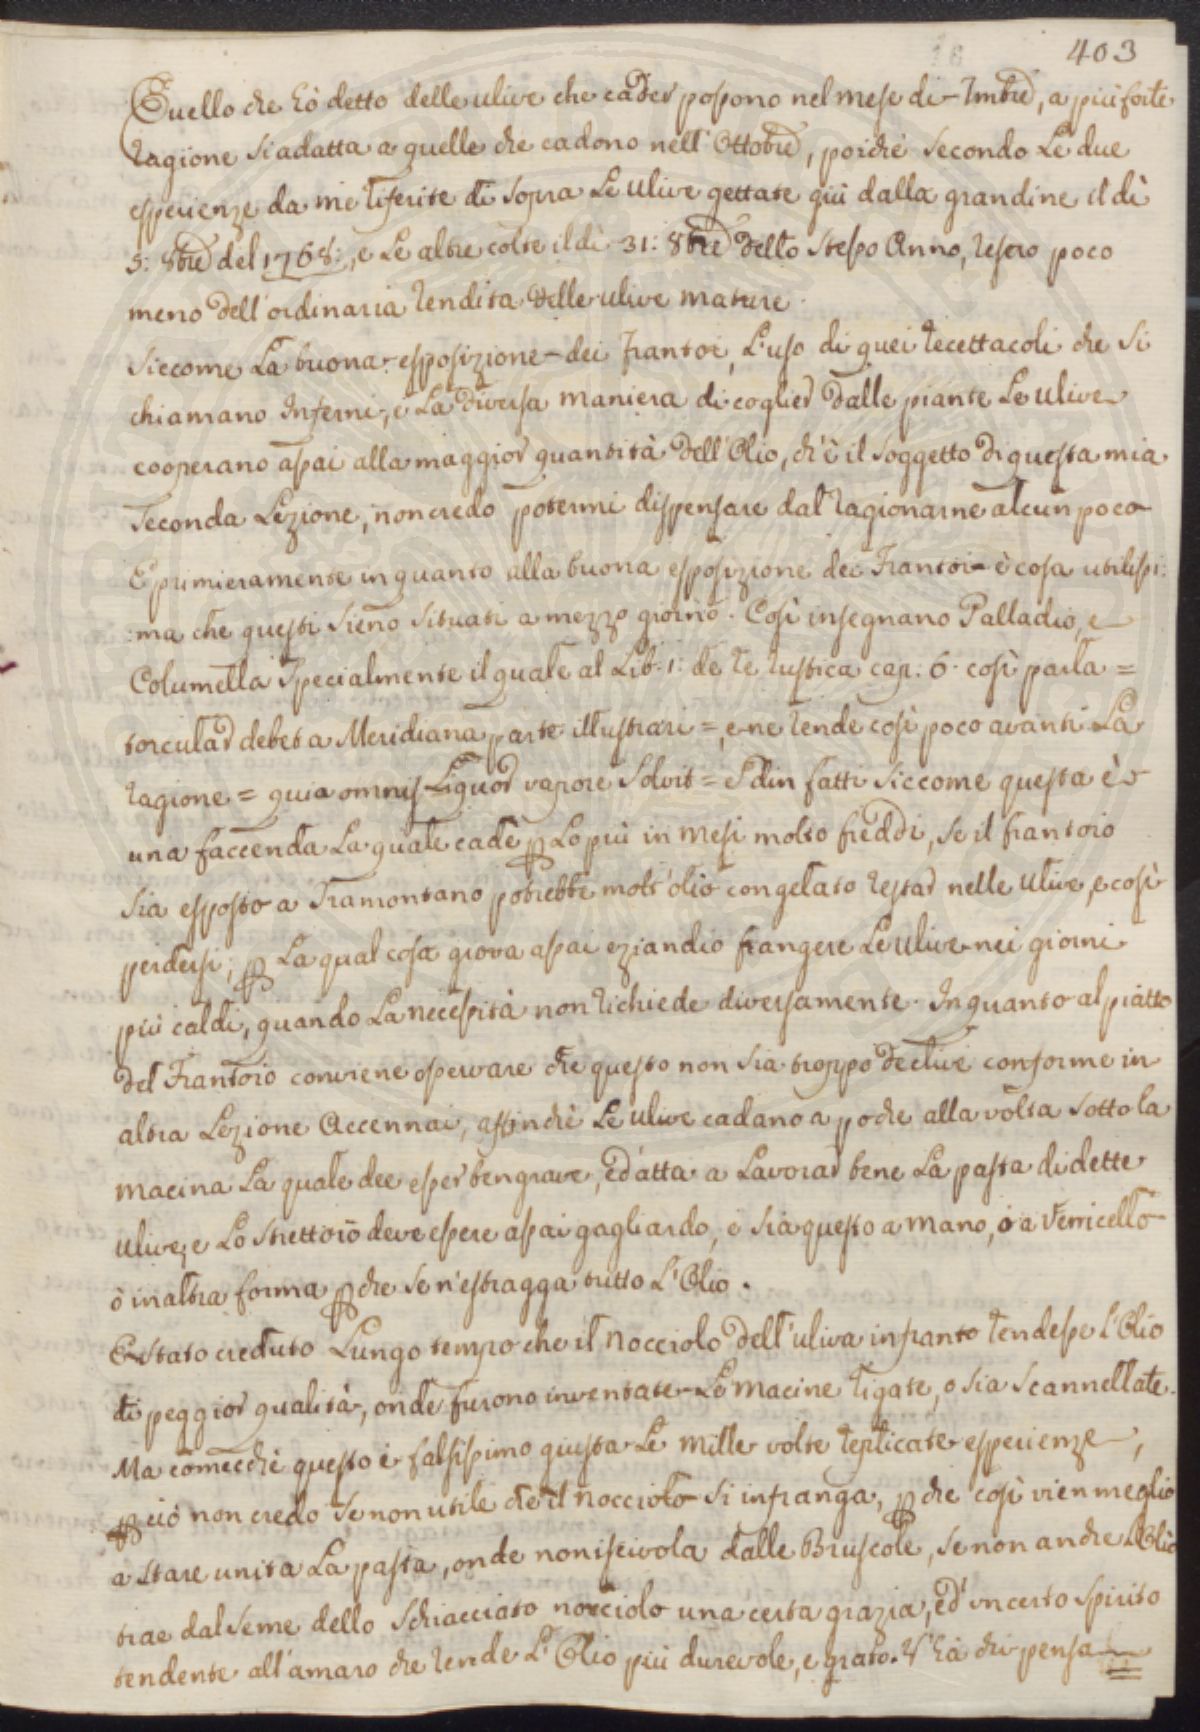 403
Quello che hò detto delle ulive che cader possono nel mese di 9mbre, a più forte
ragione si adatta a quelle che cadono nell'Ottobre, poiché secondo Le due
esperienze da me riferite di sopra Le ulive gettate giù dalla grandine il dì
5: 8bre del 1768:, e Le altre colte il dì 31: 8bre dello stesso Anno, resero poco
meno dell'ordinaria rendita delle ulive mature.
Siccome La buona esposizione dei Frantoi, L'uso di quei recettacoli che si
chiamano Inferni, e La diversa maniera di coglier dalle piante Le ulive
cooperano assai alla maggior quantità dell'Olio, ch'è il soggetto di questa mia
seconda Lezione, non credo potermi dispensare dal ragionarne alcun poco
E primieramente in quanto alla buona esposizione dei Frantoi è cosa utilissi:
:ma che questi sieno situati a mezzo giorno. Così insegnano Palladio, e
Columella specialmente il quale al Lib: 1: de re rustica cap: 6. così parla =
torcular debet a Meridiana parte illustrari =, e ne rende così poco avanti La
ragione = quia omnis Liquor vapore solvit = Ed in fatti siccome questa è
una faccenda La quale cade p Lo più in mesi molto freddi, se il frantoio
sia esposto a Tramontano potrebbe molt'olio congelato restar nelle ulive, e così
perdersi; p La qual cosa giova assai eziandio frangere Le ulive nei giorni
più caldi, quando La necessità non richiede diversamente. In quanto al piatto
del Frantoio conviene osservare che questo non sia troppo declive conforme in
altra Lezione Accennai, affinchè Le ulive cadano a poche alla volta sotto la
macina La quale dee esser ben grave, ed atta a Lavorar bene La pasta di dette
ulive, e Lo strettoio deve essere assai gagliardo, o sia questo a mano, ò a verricello
ò in altra forma pche se n'estragga tutto L'Olio.
E stato creduto Lungo tempo che il nocciolo dell'uliva infranto rendesse l'Olio
di peggior qualità, onde furono inventate Le macine rigate, o sia scannellate.
Ma comecchè questo è falsissimo giusta Le mille volte replicate esperienze,
pciò non credo se non utile che il nocciolo si infranga, pche così vien meglio
a stare unita La pasta, onde non iscivola dalle Bruscole, se non anche L'Olio
trae dal seme dello schiacciato nocciolo una certa grazia, ed un certo spirito
tendente all'amaro che rende L'Olio più durevole, e grato. V'hà chi pensa